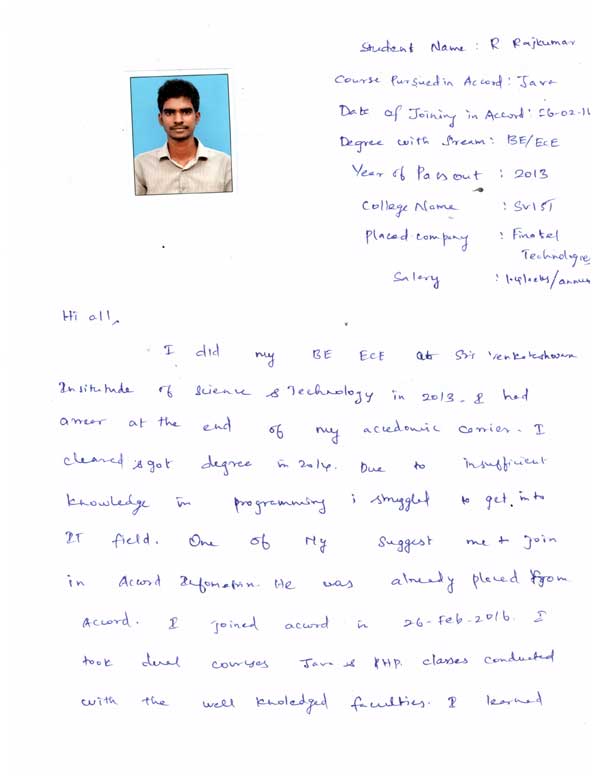 Student Name : R Rajkumar
Course Pursued in Accord : Java
Date of Joining in Accord : 26-02-16
Degree with Stream : BE/ECE
Year of Pass out : 2013
College Name : SVIST
Placed company : Finatel
Technologies
Salary : 1.4 lacks/annum
Hi all,
I did my BE ECE at Sri Venkateshwara
Institutude of Science & Technology in 2013. I had
arrear at the end of my accedomic carrier. I
cleared & got degree in 2014. Due to insufficient
knowledge in programming i struggled to get into
IT field. One of My suggest me to join
in Accord Information. He was already placed from
Accord. I joined accord in 26-Feb-2016. I
took duel courses Java & PHP. classes conducted
with the well knoledged faculties. I learned